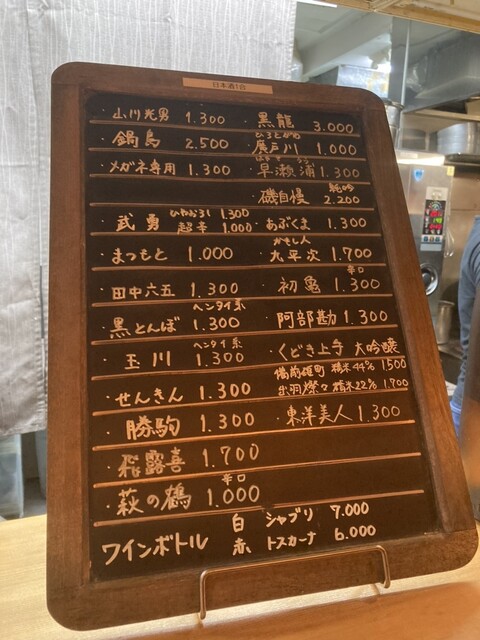 日本酒1合
・山川光男 1.300
・鍋島 2.500
・メガネ専用 1.300
・武勇 ひやおろし 1.300
超辛 1.000
・まつもと 1.000
・田中六五 1.300
ヘンタイ系
・黒とんぼ 1.300
ヘンタイ系
・玉川 1.300
・せんきん 1.300
・勝駒 1.300
・飛露喜 1.700
辛口
・萩の鶴 1.000
・黒龍 3.000
ひろとがわ
・廣戸川 1.000
・早瀬浦 1.300
純吟
磯自慢 2.200
・あぶくま 1.300
かもし人
・九平次 1.700
辛口
・初亀 1.300
・阿部勘 1.300
・くどき上手 大吟醸
備前雄町 精米44% 1.500
出羽燦々 精米22% 1.700
・東洋美人 1.300
ワインボトル
白 シャブリ 7.000
赤 トスカーナ 6.000